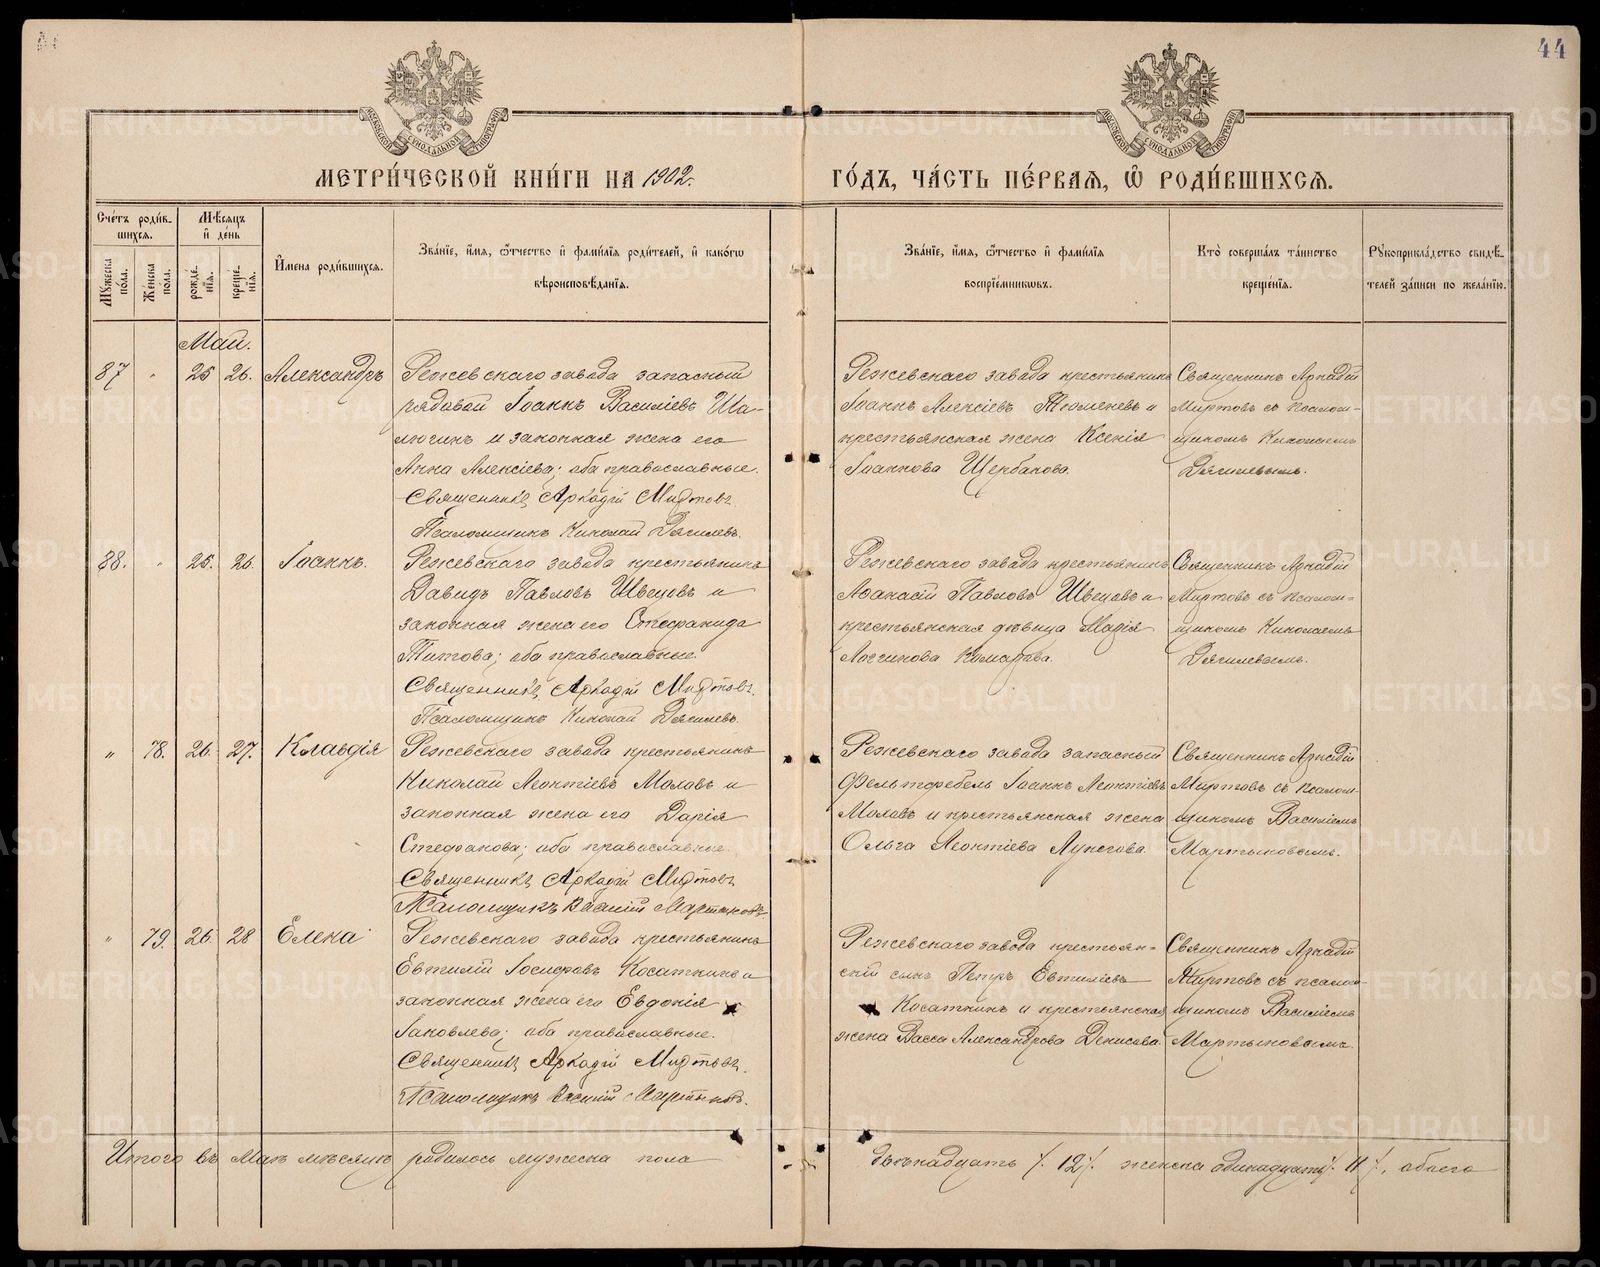 44
МОСКОВСКОЙ СѴНОДАЛЬНОЙ ТИПОГРАФІИ
МОСКОВСКОЙ СѴНОДАЛЬНОЙ ТИПОГРАФІИ
МЕТРИ́ЧЕСКОЙ КНИ́ГИ НА 1902.
ГО́ДЪ, ЧА́СТЬ ПЕ́РВАѦ, Ѡ РОДИ́ВШИХСѦ.
Сче́тъ роди́в-
шихсѧ.
Мѣ́сѧцъ
и де́нь
Мꙋ́жеска по́ла.
Же́нска по́ла.
рожде́-нїѧ.
креще́-нїѧ.
И҆мена роди́вшихсѧ.
Зва́нїе, и҆́мѧ, ѻ҆́тчество и҆ фами́лїѧ роди́телей, и҆ како́гѡ
вѣроисповѣ́данїѧ.
Зва́нїе, и҆́мѧ, ѻ҆́тчество и҆ фами́лїѧ
воспрїе́мникѡвъ.
Кто̀ соверша́лъ та́инство
креще́нїѧ.
Рꙋкоприкла́дство свидѣ́-
телей за́писи по жела́нїю.
Май.
87 " 25 26. Александръ
Режевскаго завода запасный
рядовой Іоаннъ Василіевъ Ша-
люгинъ и законная жена его
Анна Алексіева; оба православные.
Священникъ Аркадій Миртовъ.
Псаломщикъ Николай Дягилевъ.
Режевскаго завода крестьянинъ
Іоаннъ Алексіевъ Тюменевъ и
крестьянская жена Ксенія
Іоаннова Щербакова.
Священникъ Аркадій
Миртовъ съ псалом-
щикомъ Николаемъ
Дягилевымъ.
88. " 25. 26. Іоаннъ.
Режевскаго завода крестьянинъ
Давидъ Павловъ Швецовъ и
законная жена его Стефанида
Титова; оба православные.
Священникъ Аркадій Миртовъ.
Псаломщикъ Николай Дягилевъ.
Режевскаго завода крестьянинъ
Аѳанасій Павловъ Швецовъ и
крестьянская дѣвица Марія
Логгинова Комарова.
Священникъ Аркадій
Миртовъ съ псалом-
щикомъ Николаемъ
Дягилевымъ.
" 78. 26. 27. Клавдія
Режевскаго завода крестьянинъ
Николай Леонтіевъ Моховъ и
законная жена его Дарія
Стефанова; оба православные.
Священникъ Аркадій Миртовъ
Псаломщикъ Василій Мартыновъ.
Режевскаго завода запасный
фельтфебель Іоаннъ Леонтіевъ
Моховъ и крестьянская жена
Ольга Леонтіева Лунегова.
Священникъ Аркадій
Миртовъ съ псалом-
щикомъ Василіемъ
Мартыновымъ.
" 79. 26. 28 Елена
Режевскаго завода крестьянинъ
Евтихій Іосифовъ Косаткинъ и
законная жена его Евдокія
Іаковлева; оба православные.
Священникъ Аркадій Миртовъ.
Псаломщикъ Василій Мартыновъ.
Режевскаго завода крестьян-
скій сынъ Петръ Евтихіевъ
Косаткинъ и крестьянская
жена Васса Александрова Денисова.
Священникъ Аркадій
Миртовъ съ псалом-
щикомъ Василіемъ
Мартыновымъ.
Итого въ Маѣ мѣсяцѣ родилось мужеска пола
двѣнадцать /. 12 /. женска одинадцать /. 11 /. обоего
METRIKI.GASO-URAL.RU